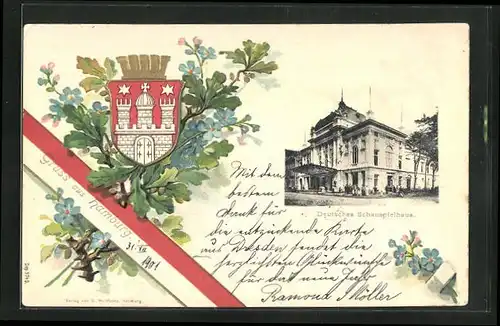 Gruss aus Hamburg.
Deutsches Schauspielhaus.
31. XII
1901
Mit dem
bestem
Dank für
die entzückende Karte
aus Dresden sendet die
herzlichsten Glückwünsche
für das neue Jahr
Ramond Möller
Verlag von Hamburg.